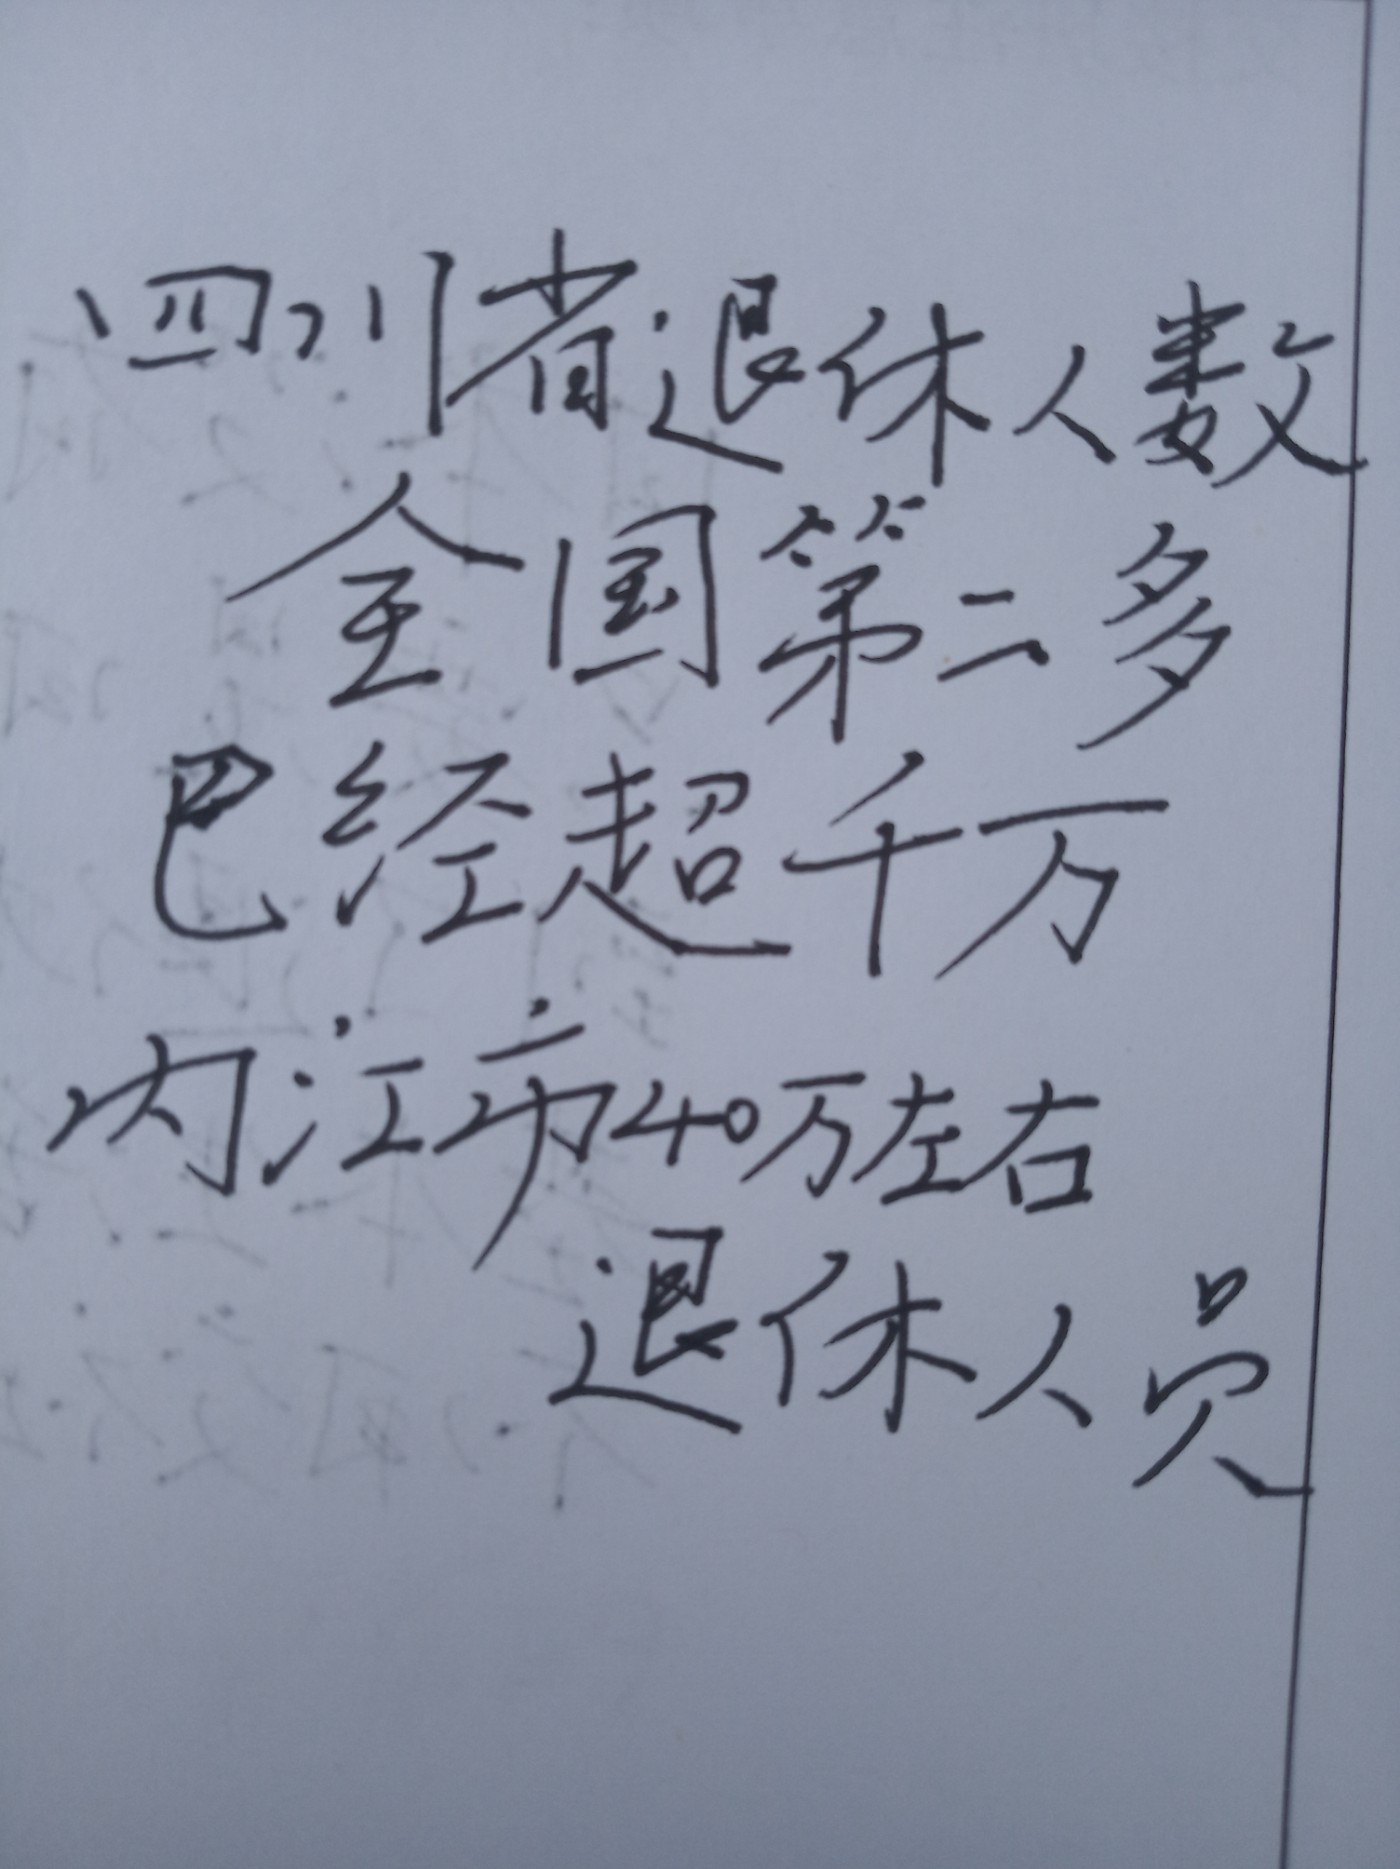 四川省退休人数
全国第二多
已经超千万
内江市40万左右
退休人员